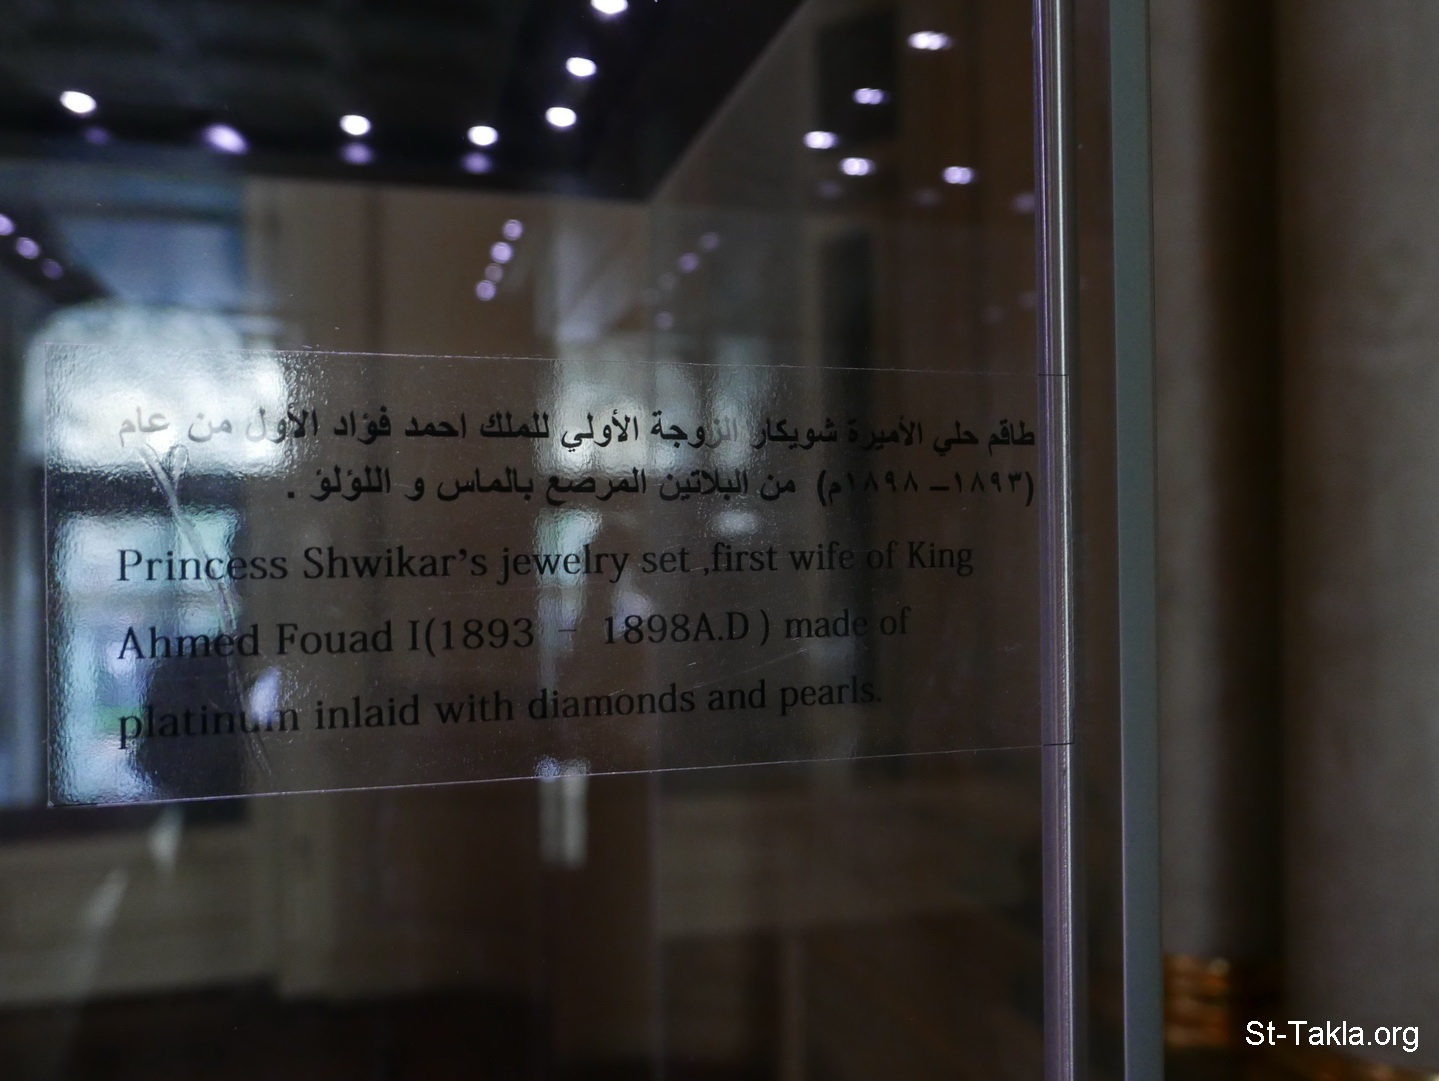 طاقم حلي الأميرة شويكار الزوجة الأولي للملك احمد فؤاد الأول من عام
(١٨٩٣– ١٨٩٨م) من البلاتين المرصع بالماس و اللؤلؤ .
Princess Shwikar's jewelry set ,first wife of King
Ahmed Fouad I(1893 – 1898A.D ) made of
platinum inlaid with diamonds and pearls.
St-Takla.org